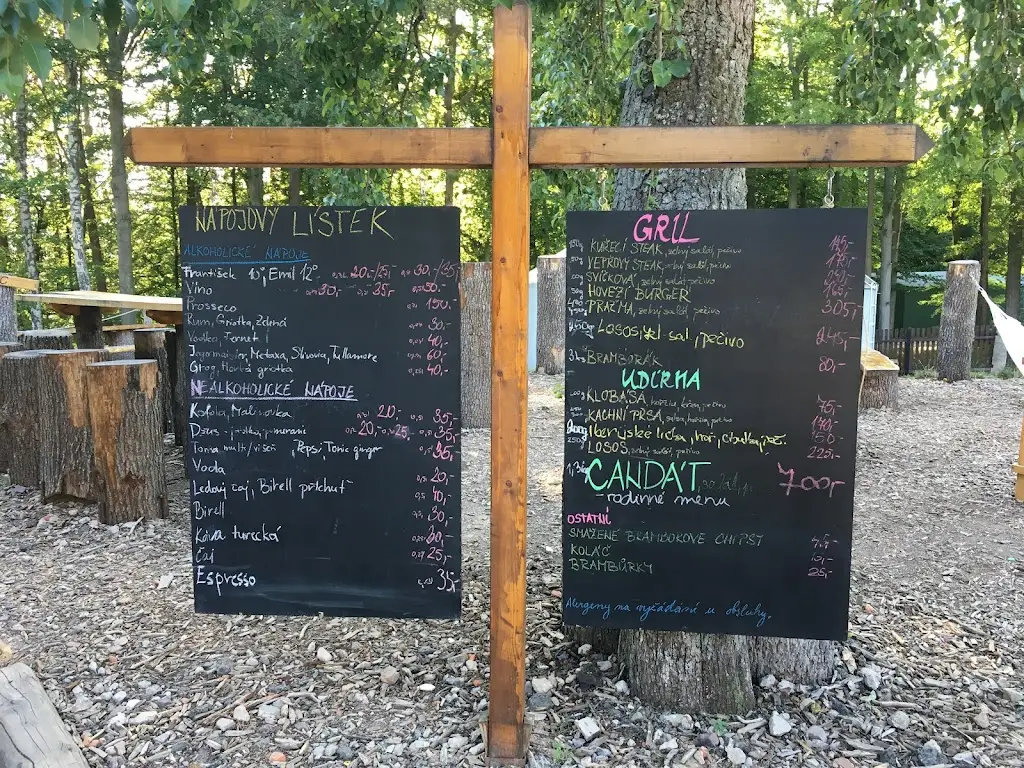 NÁPOJOVÝ LÍSTEK
ALKOHOLICKÉ NÁPOJE
František 10°, Emil 12° 20,-/25,- 30,-/35,-
Víno 30,- 35,-
Prosseco 150,-
Rum, Griotka, Zelená 30,-
Vodka, Fernet 40,-
Jägermeister, Metaxa, Slivovice, Tullamore 60,-
Grog, Horká griotka 40,-
NEALKOHOLICKÉ NÁPOJE
Kofola, Malinovka 20,- 35,-
Džus - jablko, pomeranč 20,- 25,- 35,-
Toma multi/višeň, Pepsi, Tonic ginger
Voda 20,-
Ledový čaj, Birell příchuť 40,-
Birell 30,-
Káva turecká
Čaj 25,-
Espresso 35,-
GRIL
KUŘECÍ STEAK, zelný salát, pečivo
VEPŘOVÝ STEAK, zelný salát, pečivo
SVÍČKOVÁ, zelný salát, pečivo
HOVĚZÍ BURGER 165,-
PRAČMA, zelný salát, pečivo 305,-
Losos, zel. sal, pečivo 245,-
3ks BRAMBORÁK 80,-
UDÍRNA
KLOBÁSA, hořčice, křen, pečivo 75,-
KACHNÍ PRSA 170,-
Iberijské líčka, hoř, cibulka, peč.
LOSOS, zelný salát, pečivo 225,-
CANDÁT 700,-
- rodinné menu
OSTATNÍ
SMAŽENÉ BRAMBOROVÉ CHIPSY
KOLÁČ
BRAMBŮRKY 25,-
Alergeny na vyžádání u obsluhy.